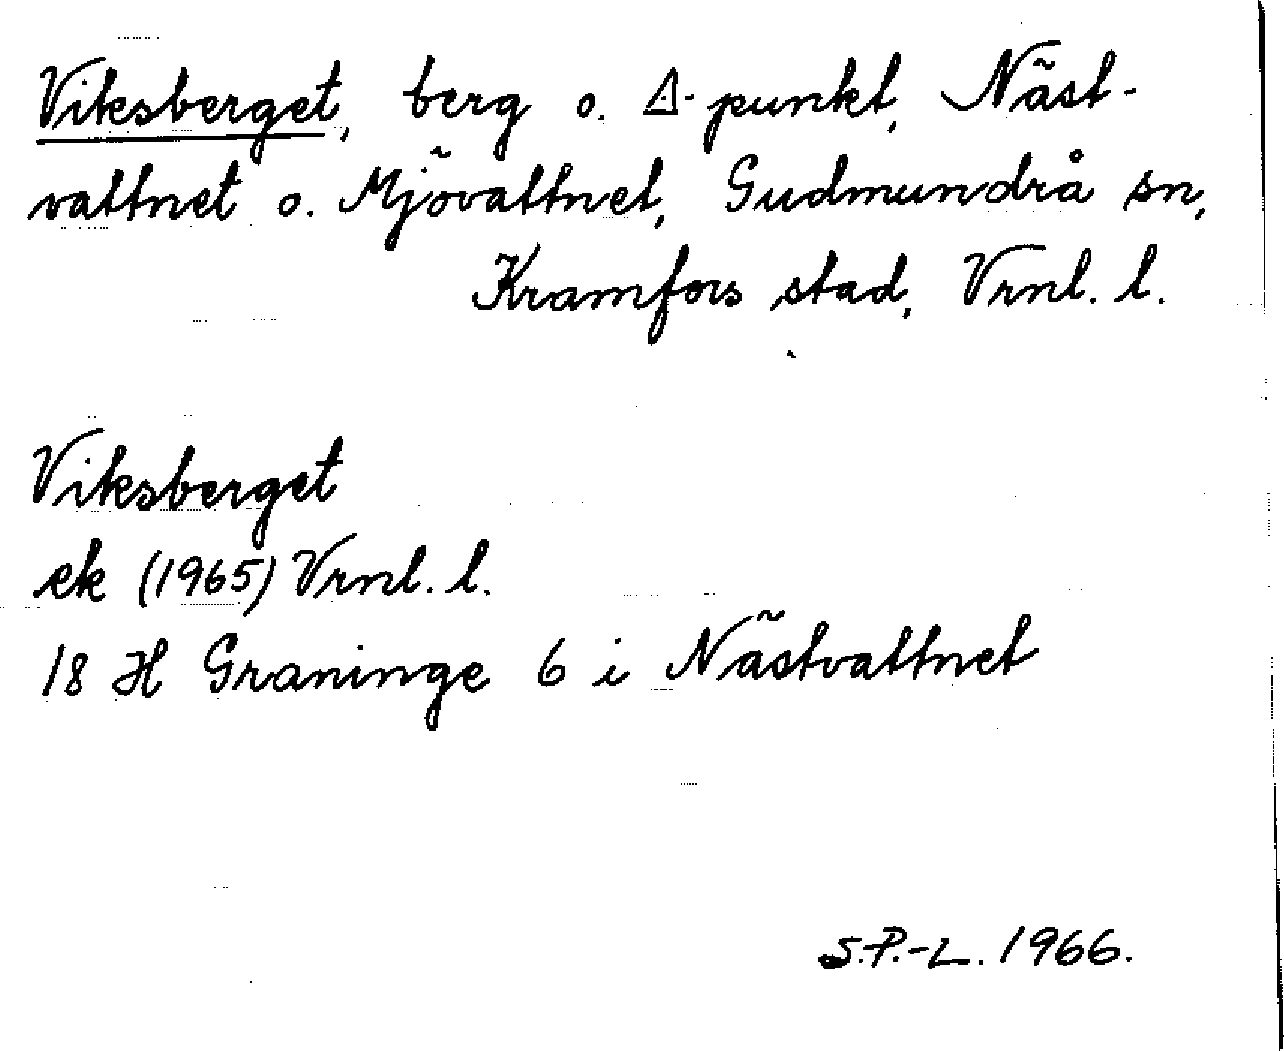 Viksberget, berg o. △-punkt, Näst-
vattnet o. Mjövattnet, Gudmundrå sn,
Kramfors stad, Vrnl. l.
Viksberget
ek (1965) Vrnl. l.
18 H Graninge 6 i Nästvattnet
S.P.-L. 1966.